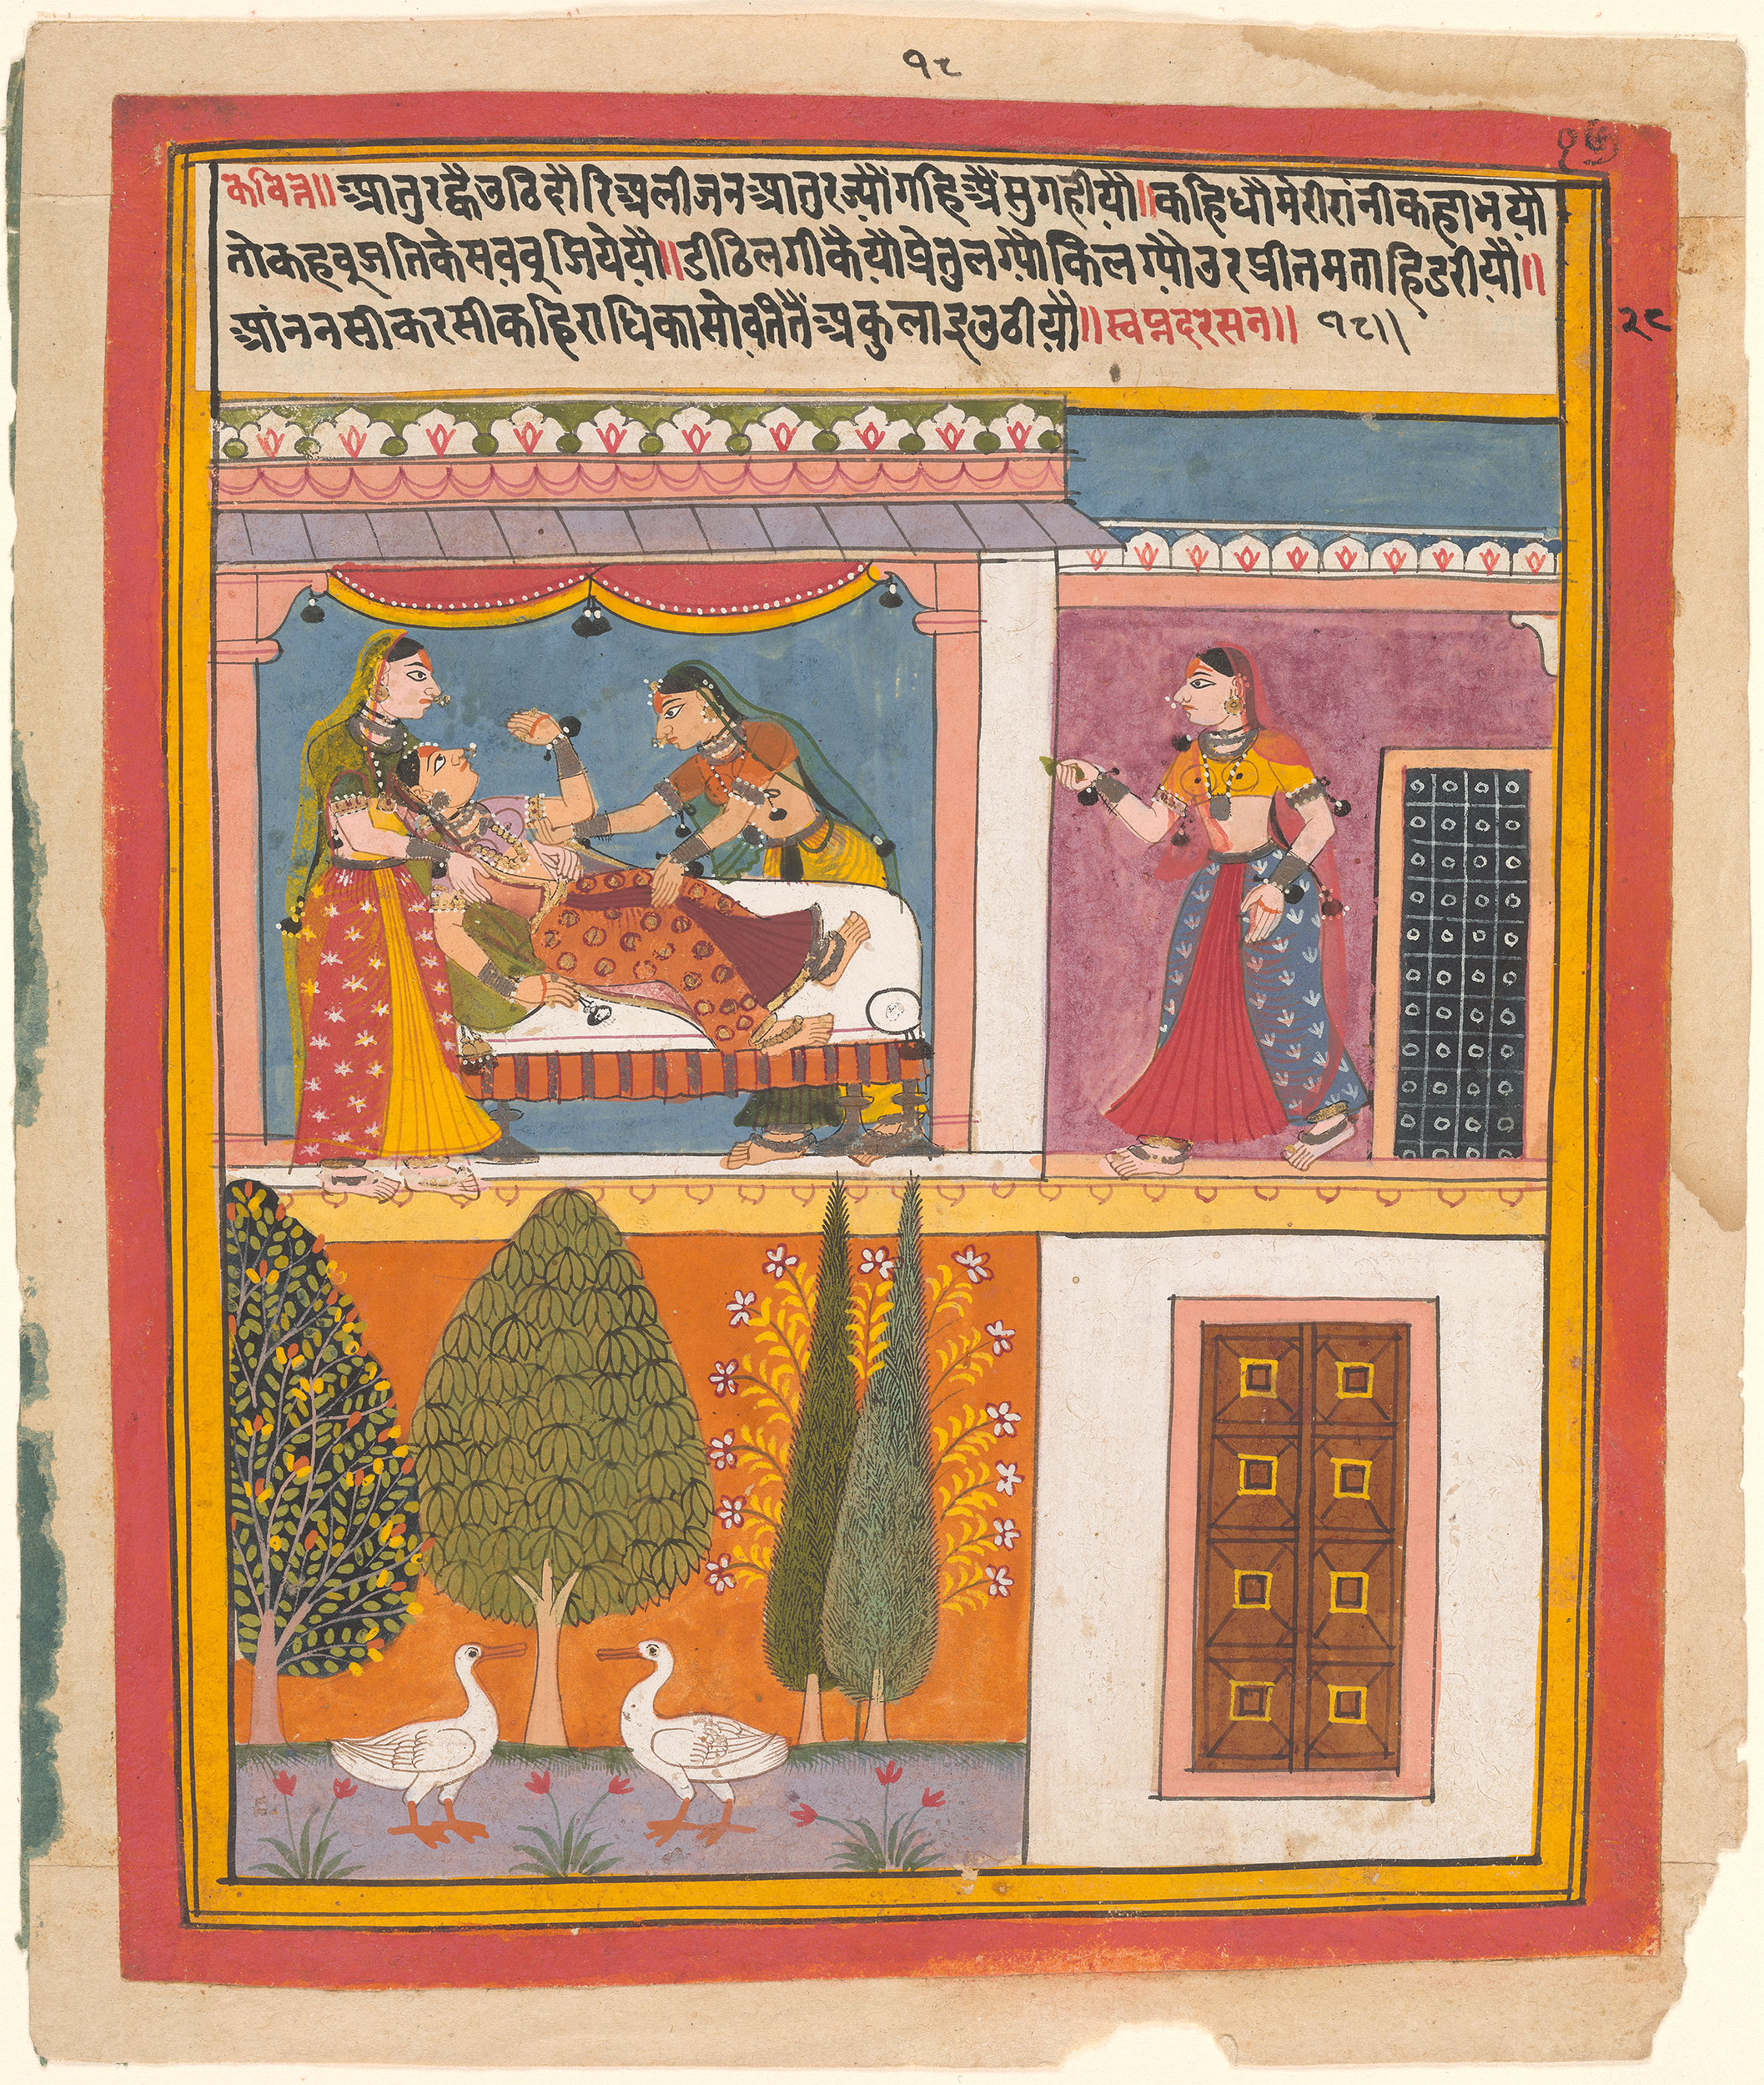 १८
१७
कवित्त॥आतुरह्वैउठिदौरिअलीजनआतुरज्यौंगहिअैंसुगहीयौ॥कहिधौमेरीरांनीकहाभयौ
तोकहबूझतिकेसवबूझियेयौ॥डीठिलगीकैयौप्रेतुलग्यौकिलग्यौउरप्रीतमताहिडरीयौ॥
आंननसीकरसीकहिराधिकासोवततैंअकुलाइउठीयौ॥स्वप्नदरसन॥ १८॥
२८